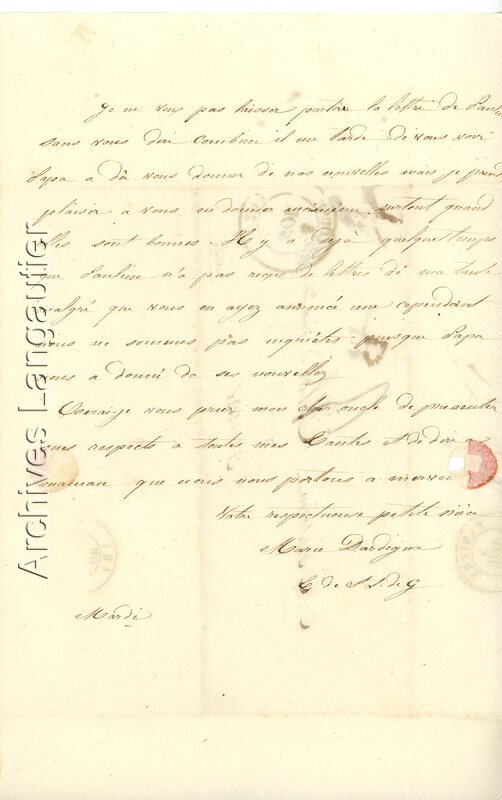 Je ne veux pas laisser partir la lettre de Pauline
sans vous dire combien il me tarde de vous voir
Papa a dû vous donner de nos nouvelles mais je prends
plaisir a vous en donner moimême surtout quand
elles sont bonnes. Il y a Deja quelque temps
que Pauline n'a pas reçue de lettres de ma tante
malgré que vous en ayez annoncé une cependant
nous ne sommes pas inquiétes puisque Papa
nous a donné de ses nouvelles
Oserai-je vous prier mon cher oncle de presenter
mes respects à toutes mes tantes et de dire a
maman que nous nous portons a merveille
Votre respectueuse petite nièce
Marie Dardigna
E de S L de G
Mardi
Archives Langautier